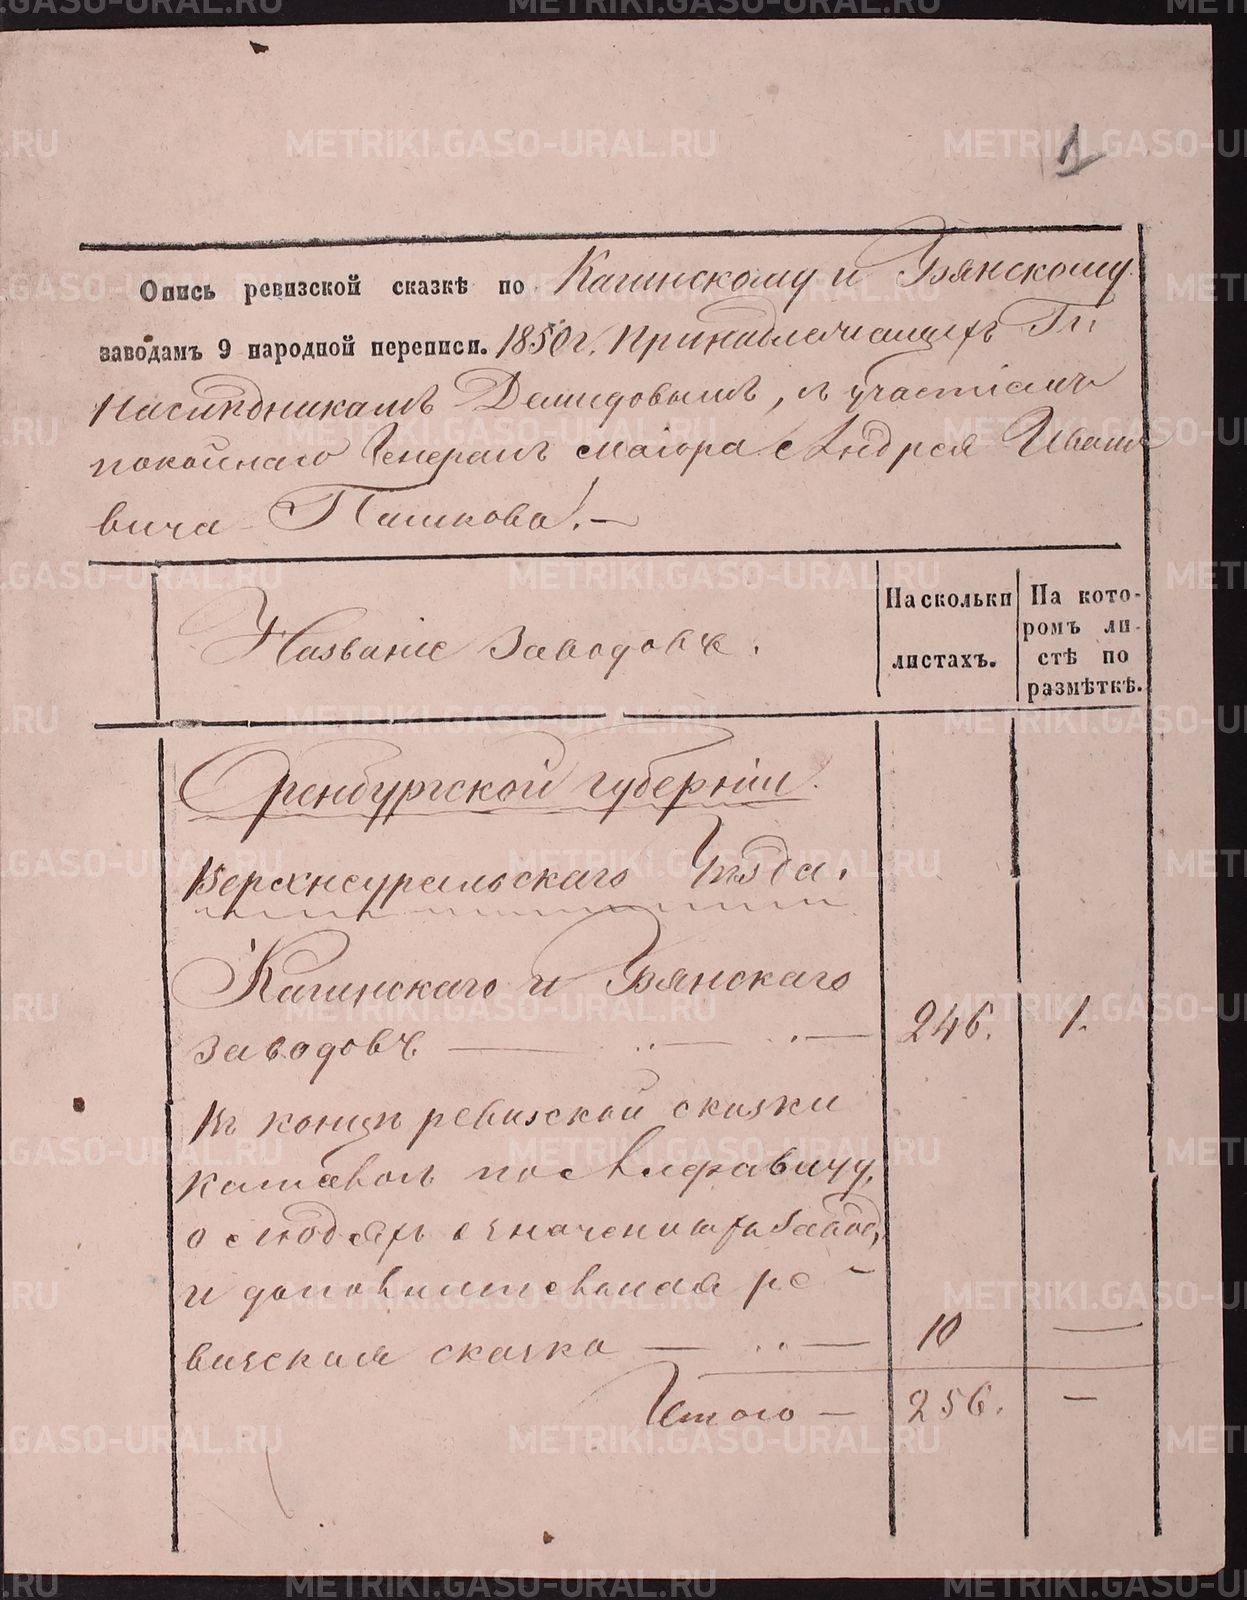 1
Опись ревизской сказкѣ по Кагинскому и Узянскому
заводамъ 9 народной переписи. 1850 г. Принадлежащихъ Гг.
Наслѣдникамъ Демидовымъ, съ участіемъ
покойнаго Генералъ маіора Андрея Ивано
вича Пашкова.
Названіе Заводовъ.
Наскольки
листахъ.
На кото-
ромъ ли-
стѣ по
размѣткѣ.
Оренбургской губерніи.
Верхнеуральскаго Уѣзда.
Кагинскаго и Узянскаго
Заводовъ. 246. 1.
Въ концѣ ревизской сказки
по Алфавиту,
о людяхъ означенныхъ завод,
и дополнительная ре-
визская сказка 10 —
Итого — 256. —
METRIKI.GASO-URAL.RU